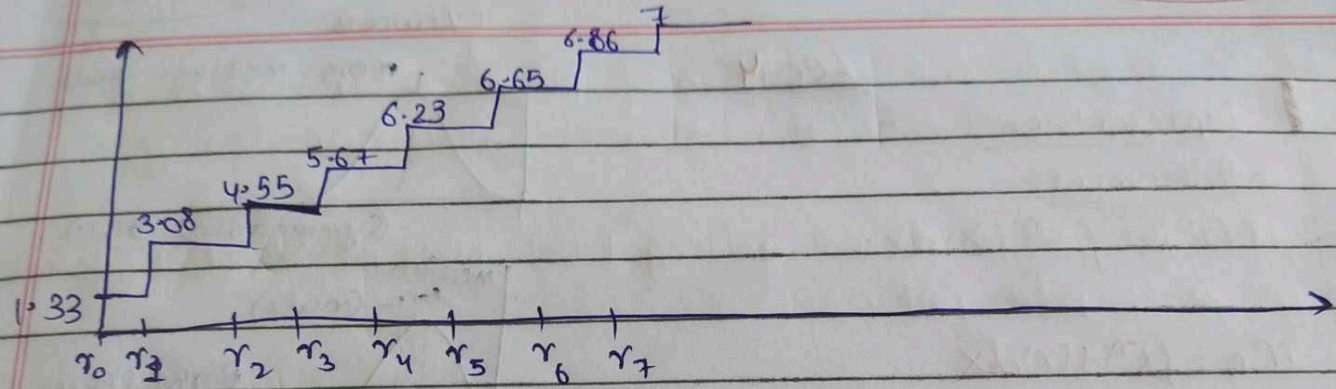 7
6.86
6.65
6.23
5.67
4.55
3.08
1.33
r₀ r₁ r₂ r₃ r₄ r₅ r₆ r₇